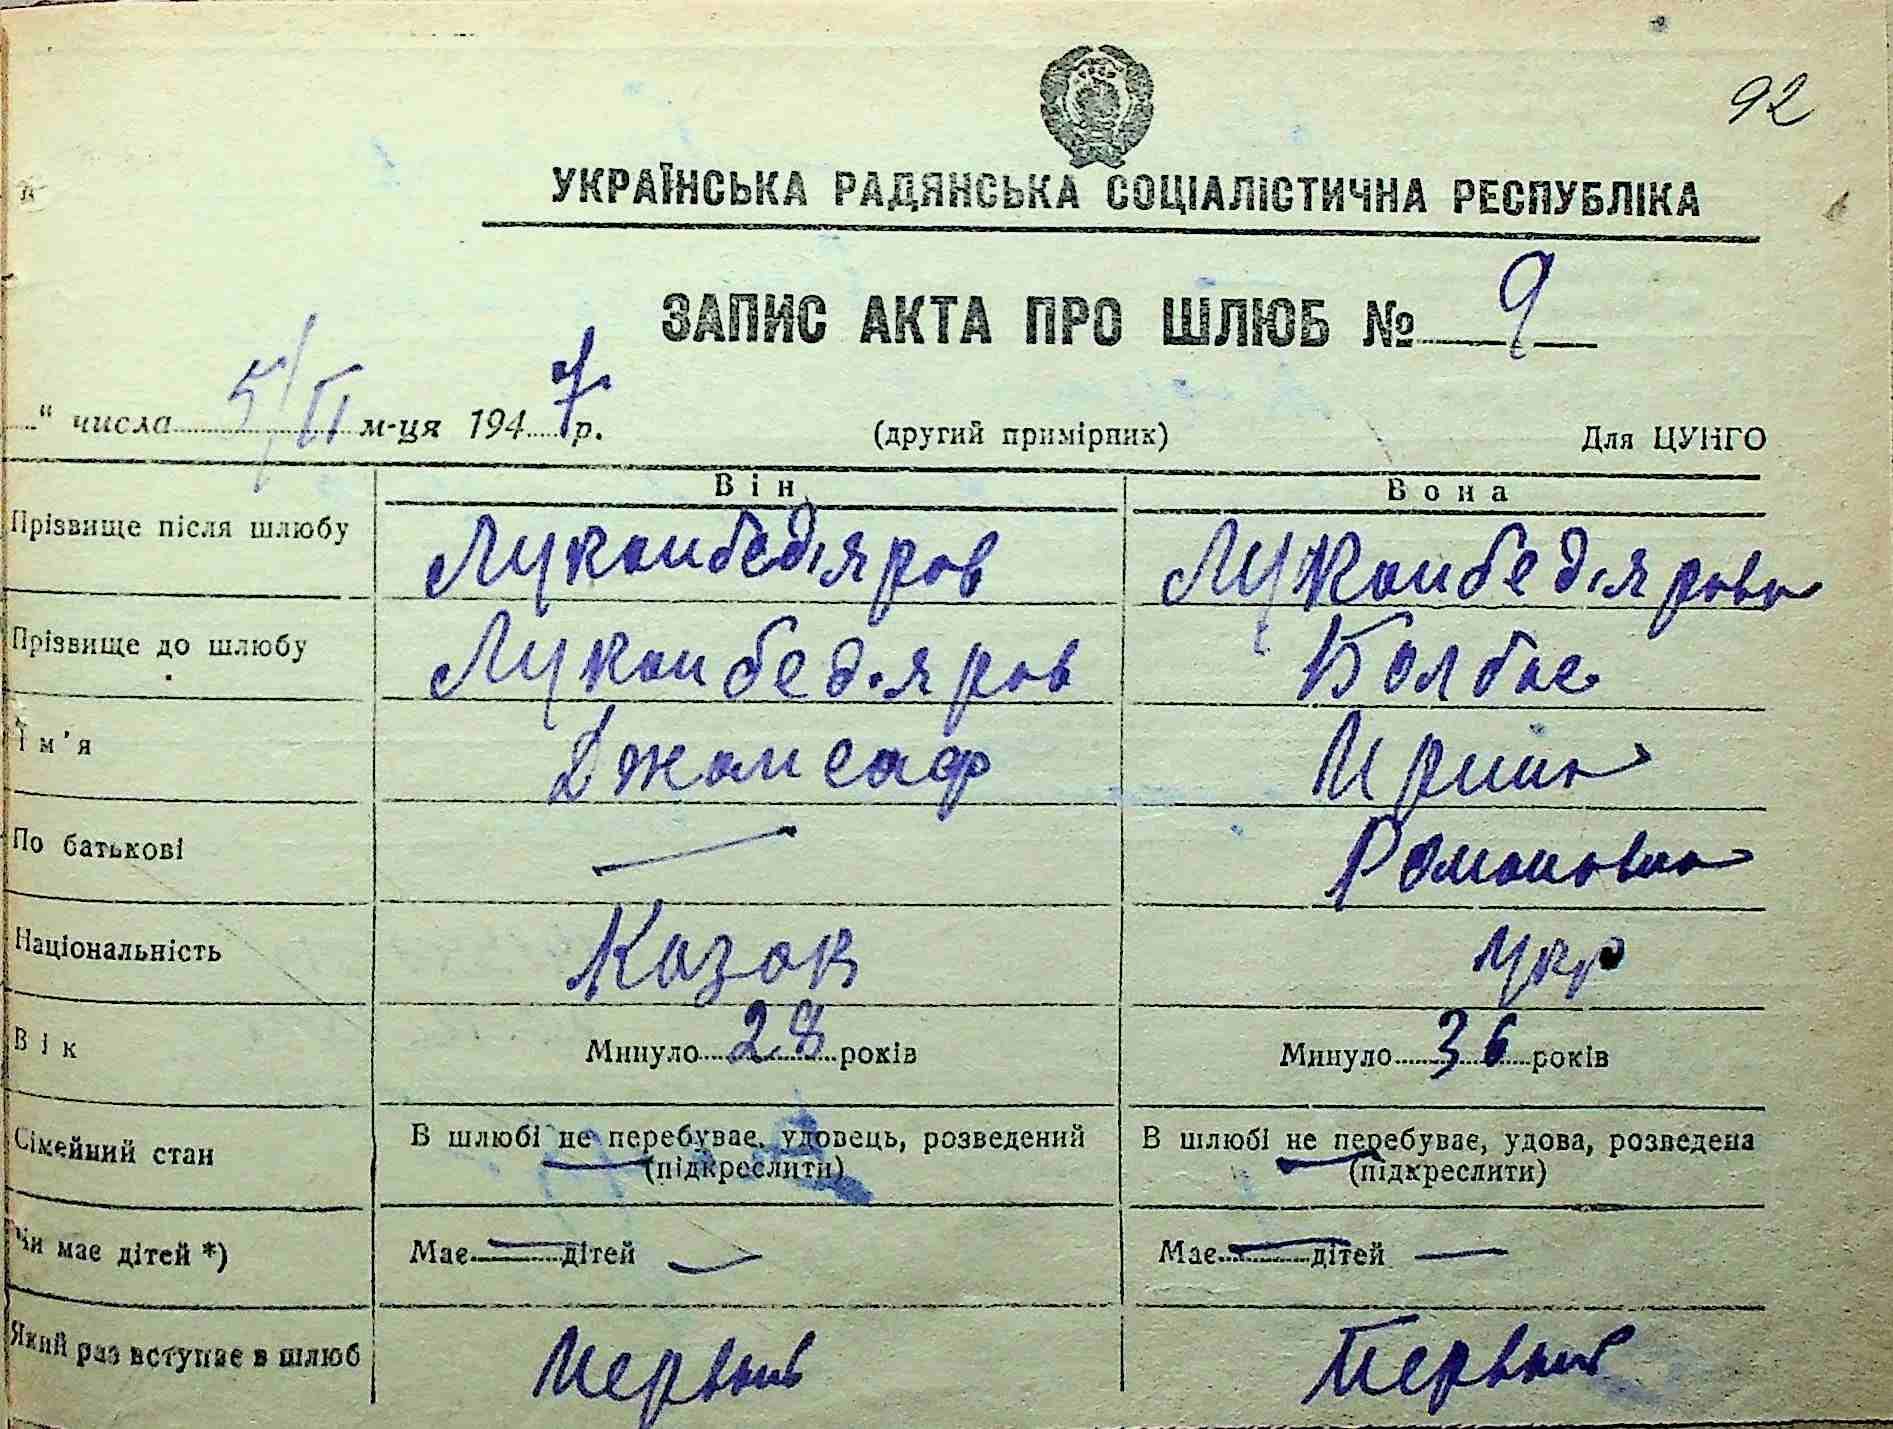 92
УКРАЇНСЬКА РАДЯНСЬКА СОЦІАЛІСТИЧНА РЕСПУБЛІКА
ЗАПИС АКТА ПРО ШЛЮБ № 9
" числа 5/II м-ця 1947 р. (другий примірник) Для ЦУНГО
Він Вона
Прізвище після шлюбу Муканбедіяров Муканбедіярова
Прізвище до шлюбу Муканбедіяров Колбас
Ім'я Джансаф Ирина
По батькові — Романовна
Національність Казак укр
Вік Минуло 28 років Минуло 36 років
Сімейний стан В шлюбі не перебуває, удовець, розведений В шлюбі не перебуває, удова, розведена
(підкреслити) (підкреслити)
Чи має дітей *) Має — дітей — Має — дітей —
Який раз вступає в шлюб Первый Первый